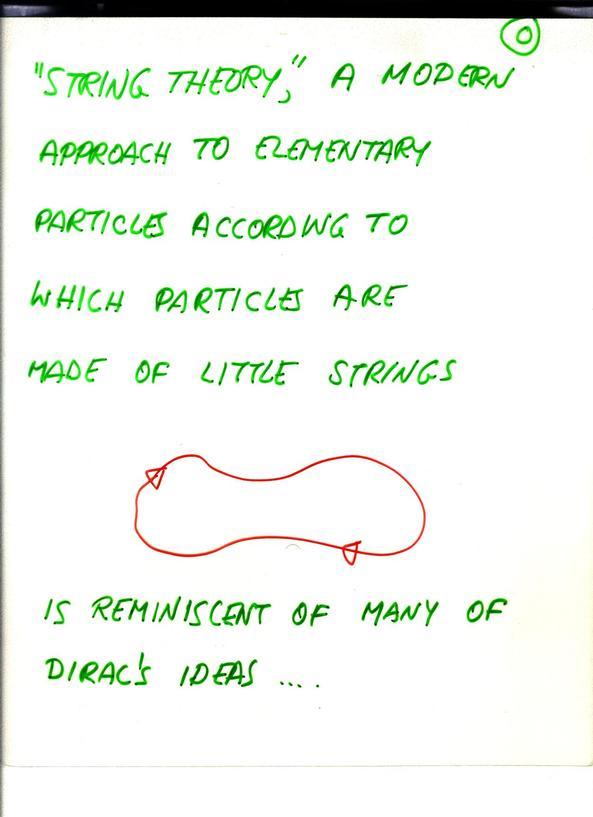 0
"STRING THEORY," A MODERN
APPROACH TO ELEMENTARY
PARTICLES ACCORDING TO
WHICH PARTICLES ARE
MADE OF LITTLE STRINGS
IS REMINISCENT OF MANY OF
DIRAC'S IDEAS ....